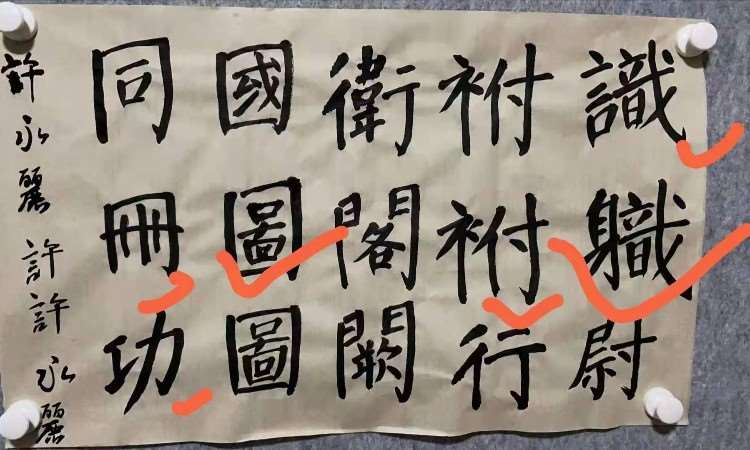 識軄尉
祔祔行
衛閣闕
國圖圖
同冊功
許永麗許許永麗